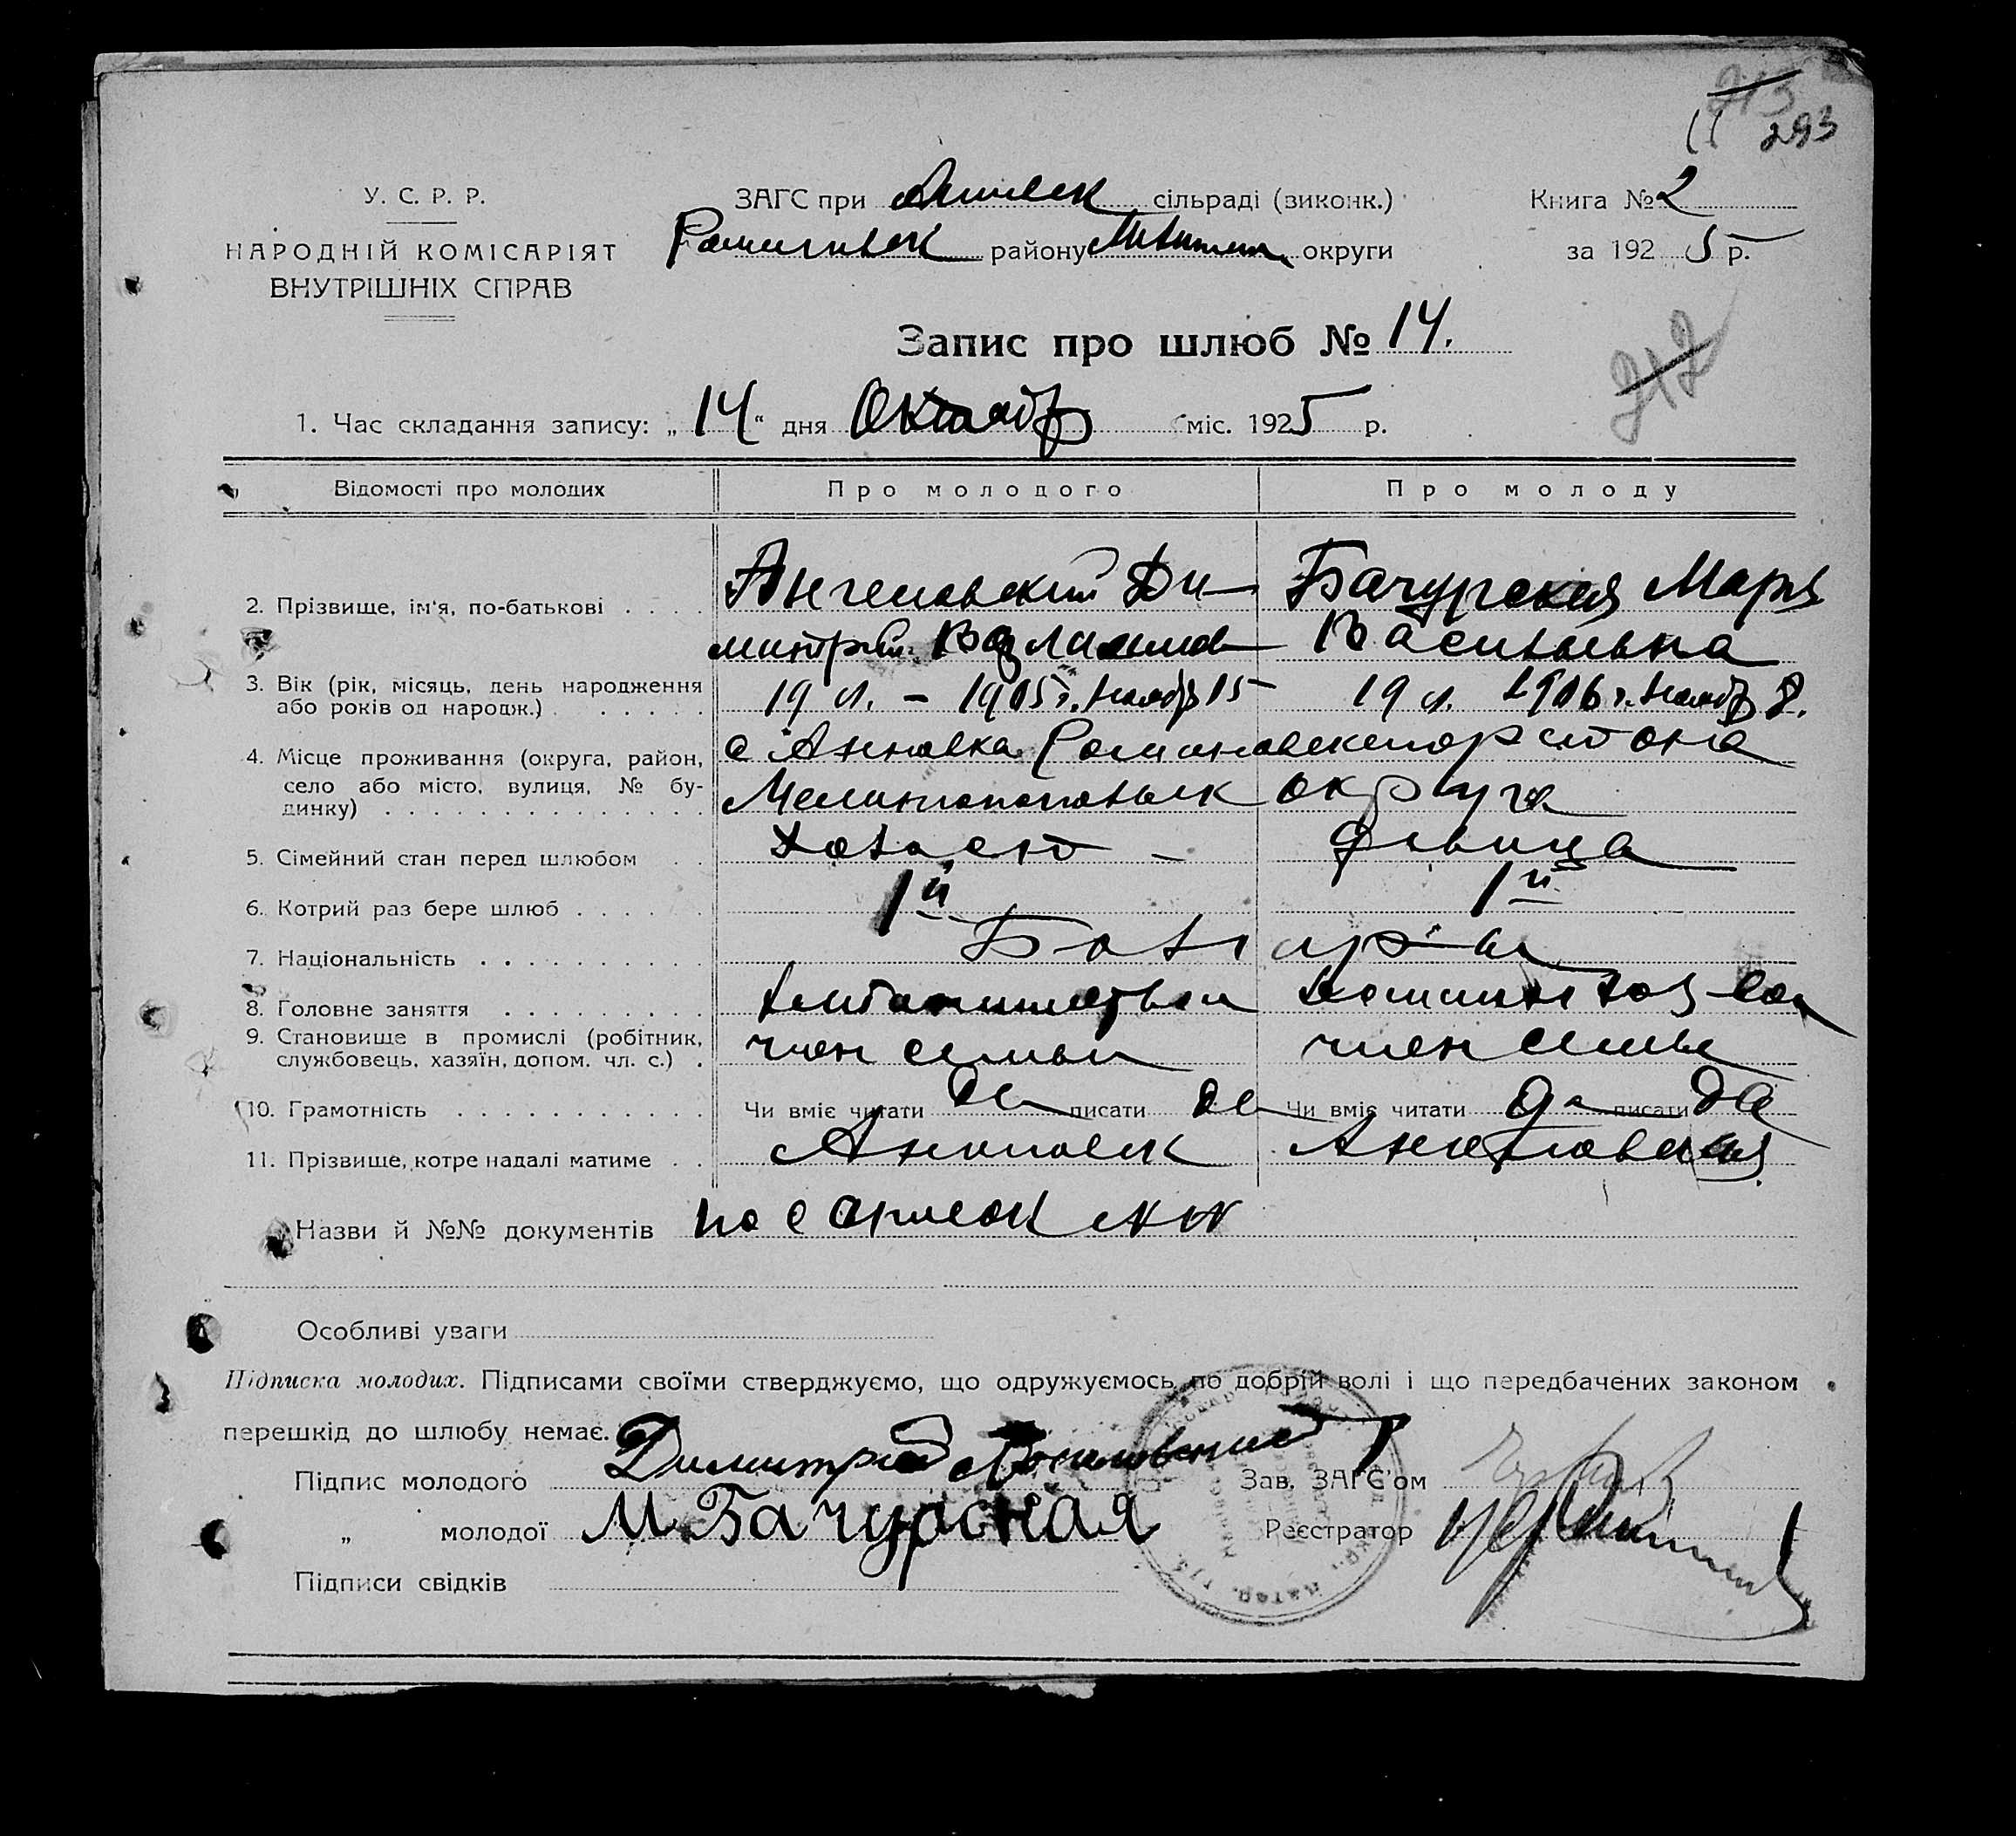 293
У. С. Р. Р.
НАРОДНІЙ КОМІСАРІЯТ
ВНУТРІШНІХ СПРАВ
ЗАГС при сільраді (виконк.)
району округи
Книга № 2
за 1925 р.
Запис про шлюб № 14.
212
1. Час складання запису: „14“ дня Октябр міс. 1925 р.
Відомості про молодих
Про молодого
Про молоду
2. Прізвище, ім'я, по-батькові
Ангеловский Ди-
митрий
Бачурская Мария
Васильевна
3. Вік (рік, місяць, день народження
або років од народж.)
19 л. - 1905 г. Ноябр 15
19 л. 1906 г. Ноябр 8.
4. Місце проживання (округа, район,
село або місто, вулиця, № бу-
динку)
с Анновка района
Мелитопольск округа
5. Сімейний стан перед шлюбом
Холост -
Девица
6. Котрий раз бере шлюб
1й
1й
7. Національність
Болгары
8. Головне заняття
9. Становище в промислі (робітник,
службовець, хазяїн, допом. чл. с.)
член семьи
член семьи
10. Грамотність
Чи вміє читати да писати да
Чи вміє читати да писати да
11. Прізвище, котре надалі матиме
Ангеловская
Назви й №№ документів
по список
Особливі уваги
Підписка молодих. Підписами своїми стверджуємо, що одружуємось по добрій волі і що передбачених законом
перешкід до шлюбу немає.
Підпис молодого Димитрий
Зав. ЗАГС'ом
„ молодої М Бачурская
Реєстратор
Підписи свідків